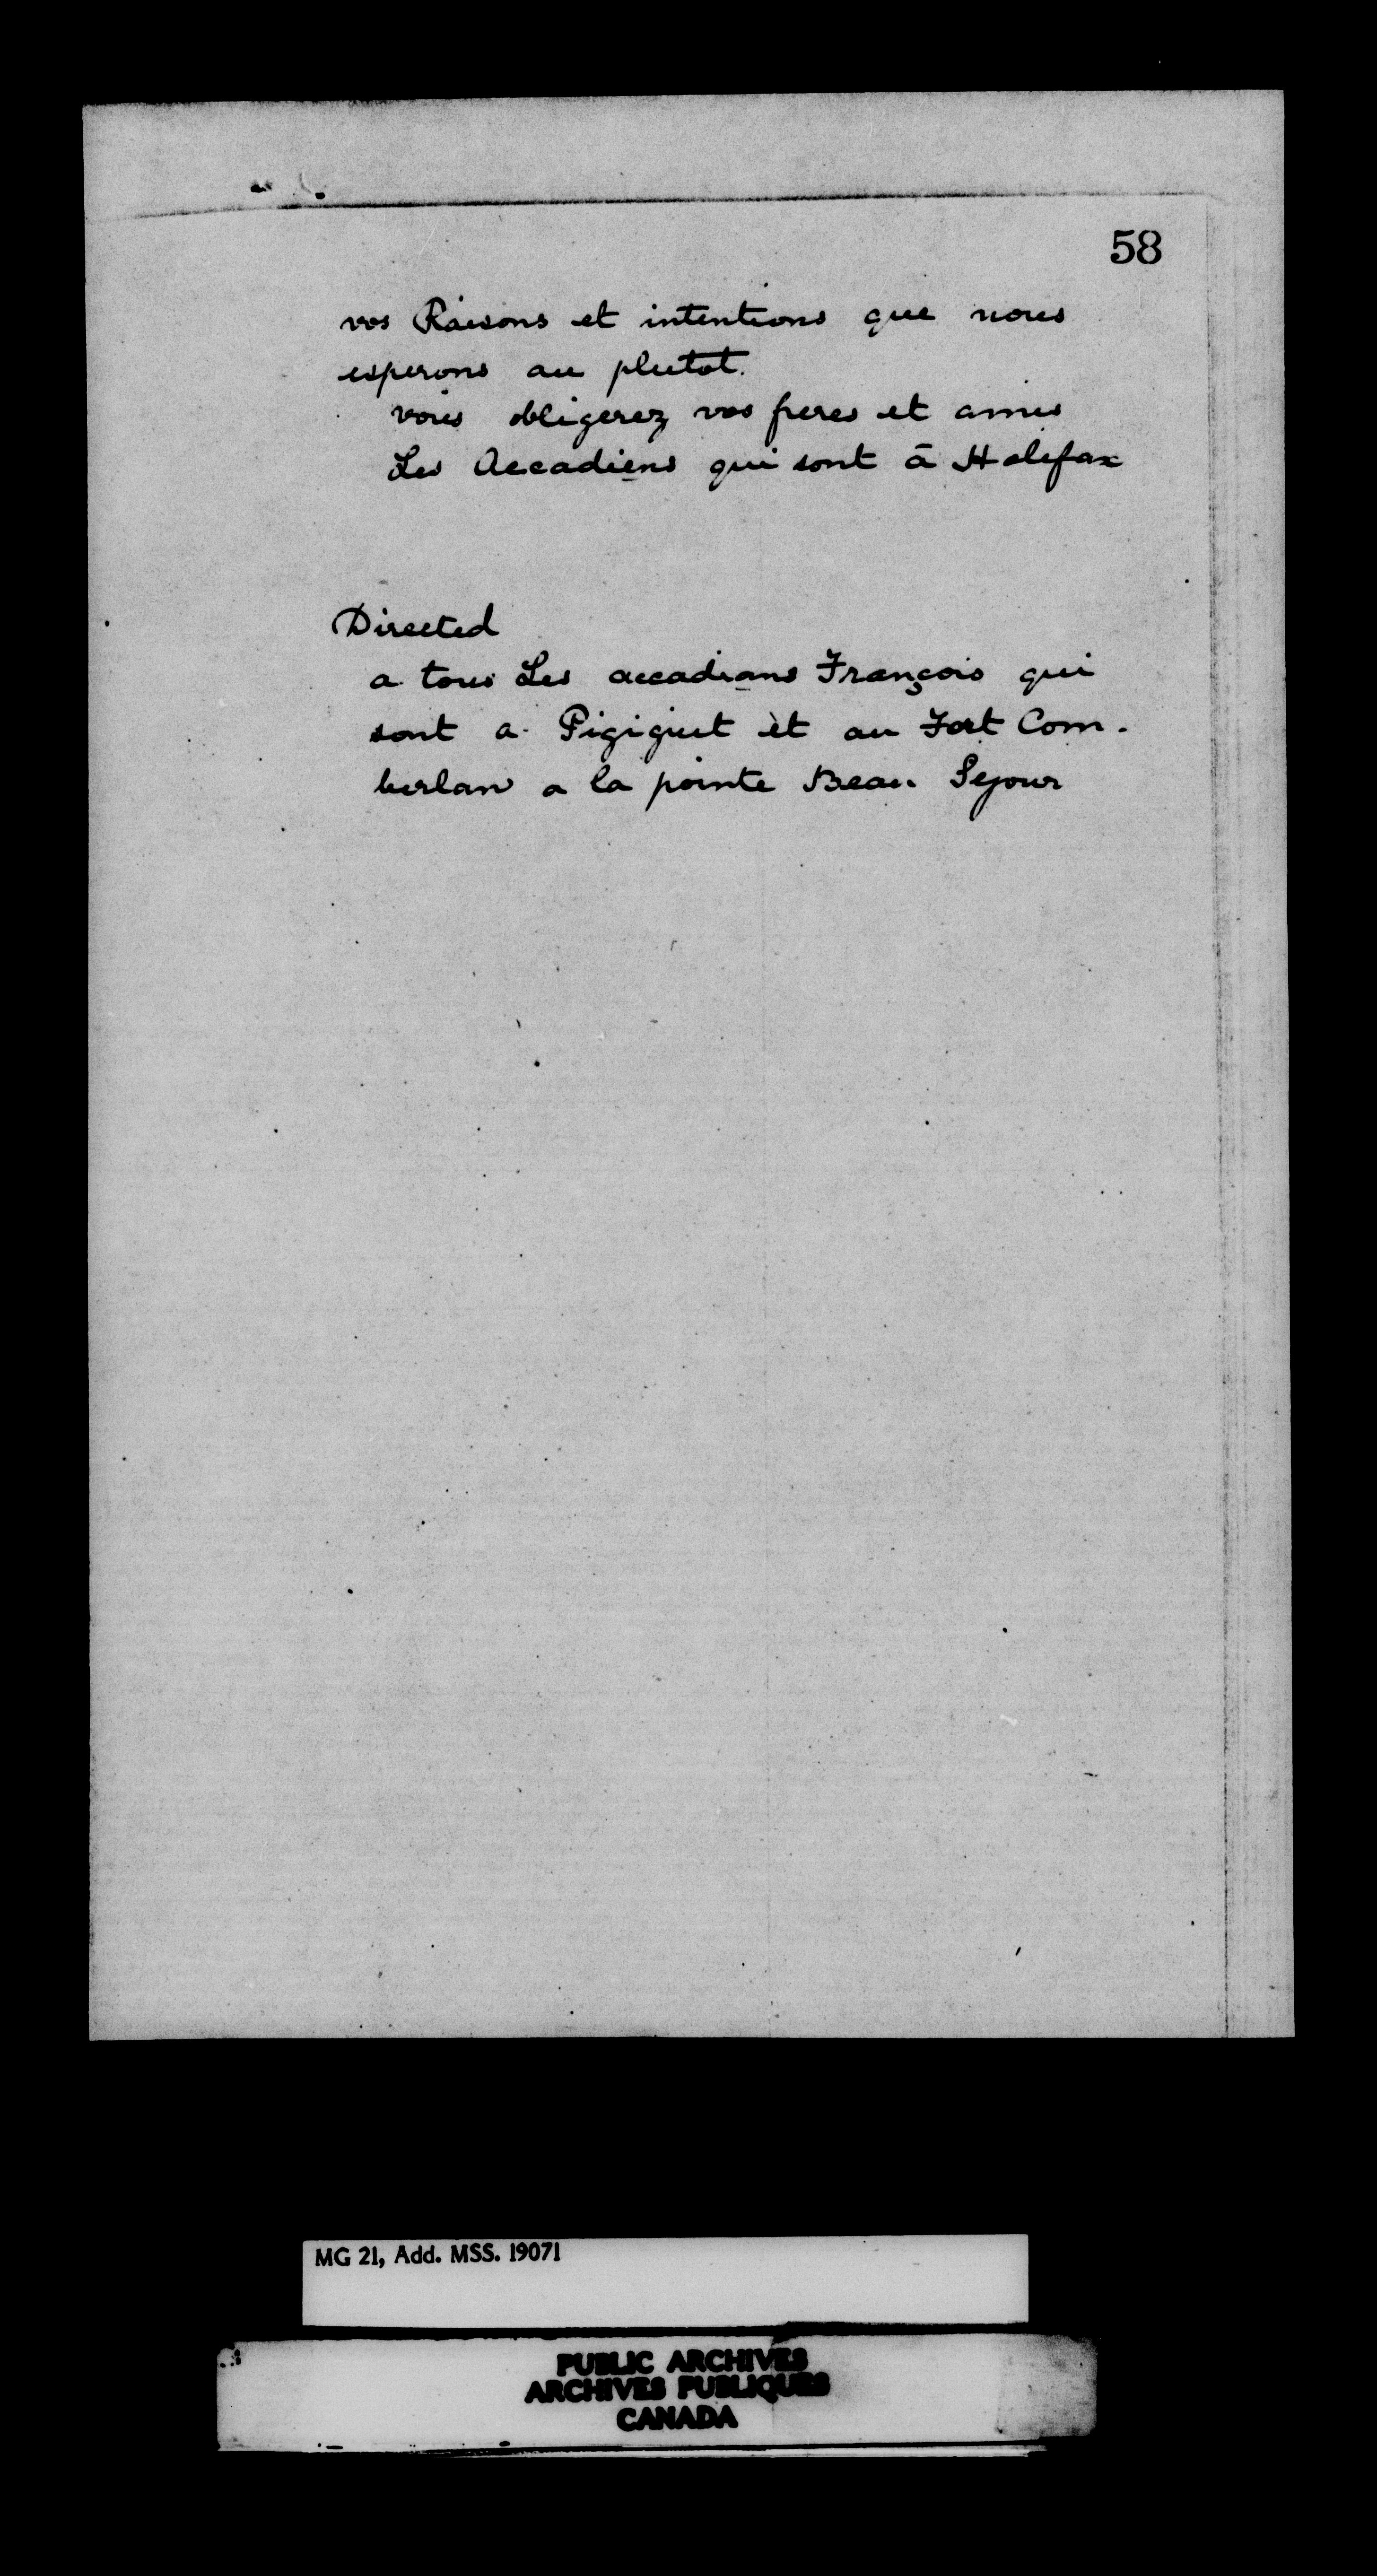 58
vos Raisons et intentions que nous
esperons au plutot.
vous obligerez vos freres et amis
Les Accadiens qui sont à Halifax
Directed
a tous Les accadians François qui
sont a Pigiguit et au Fort Com-
berlan a la pointe Beau Sejour
MG 21, Add. MSS. 19071
PUBLIC ARCHIVES
ARCHIVES PUBLIQUES
CANADA